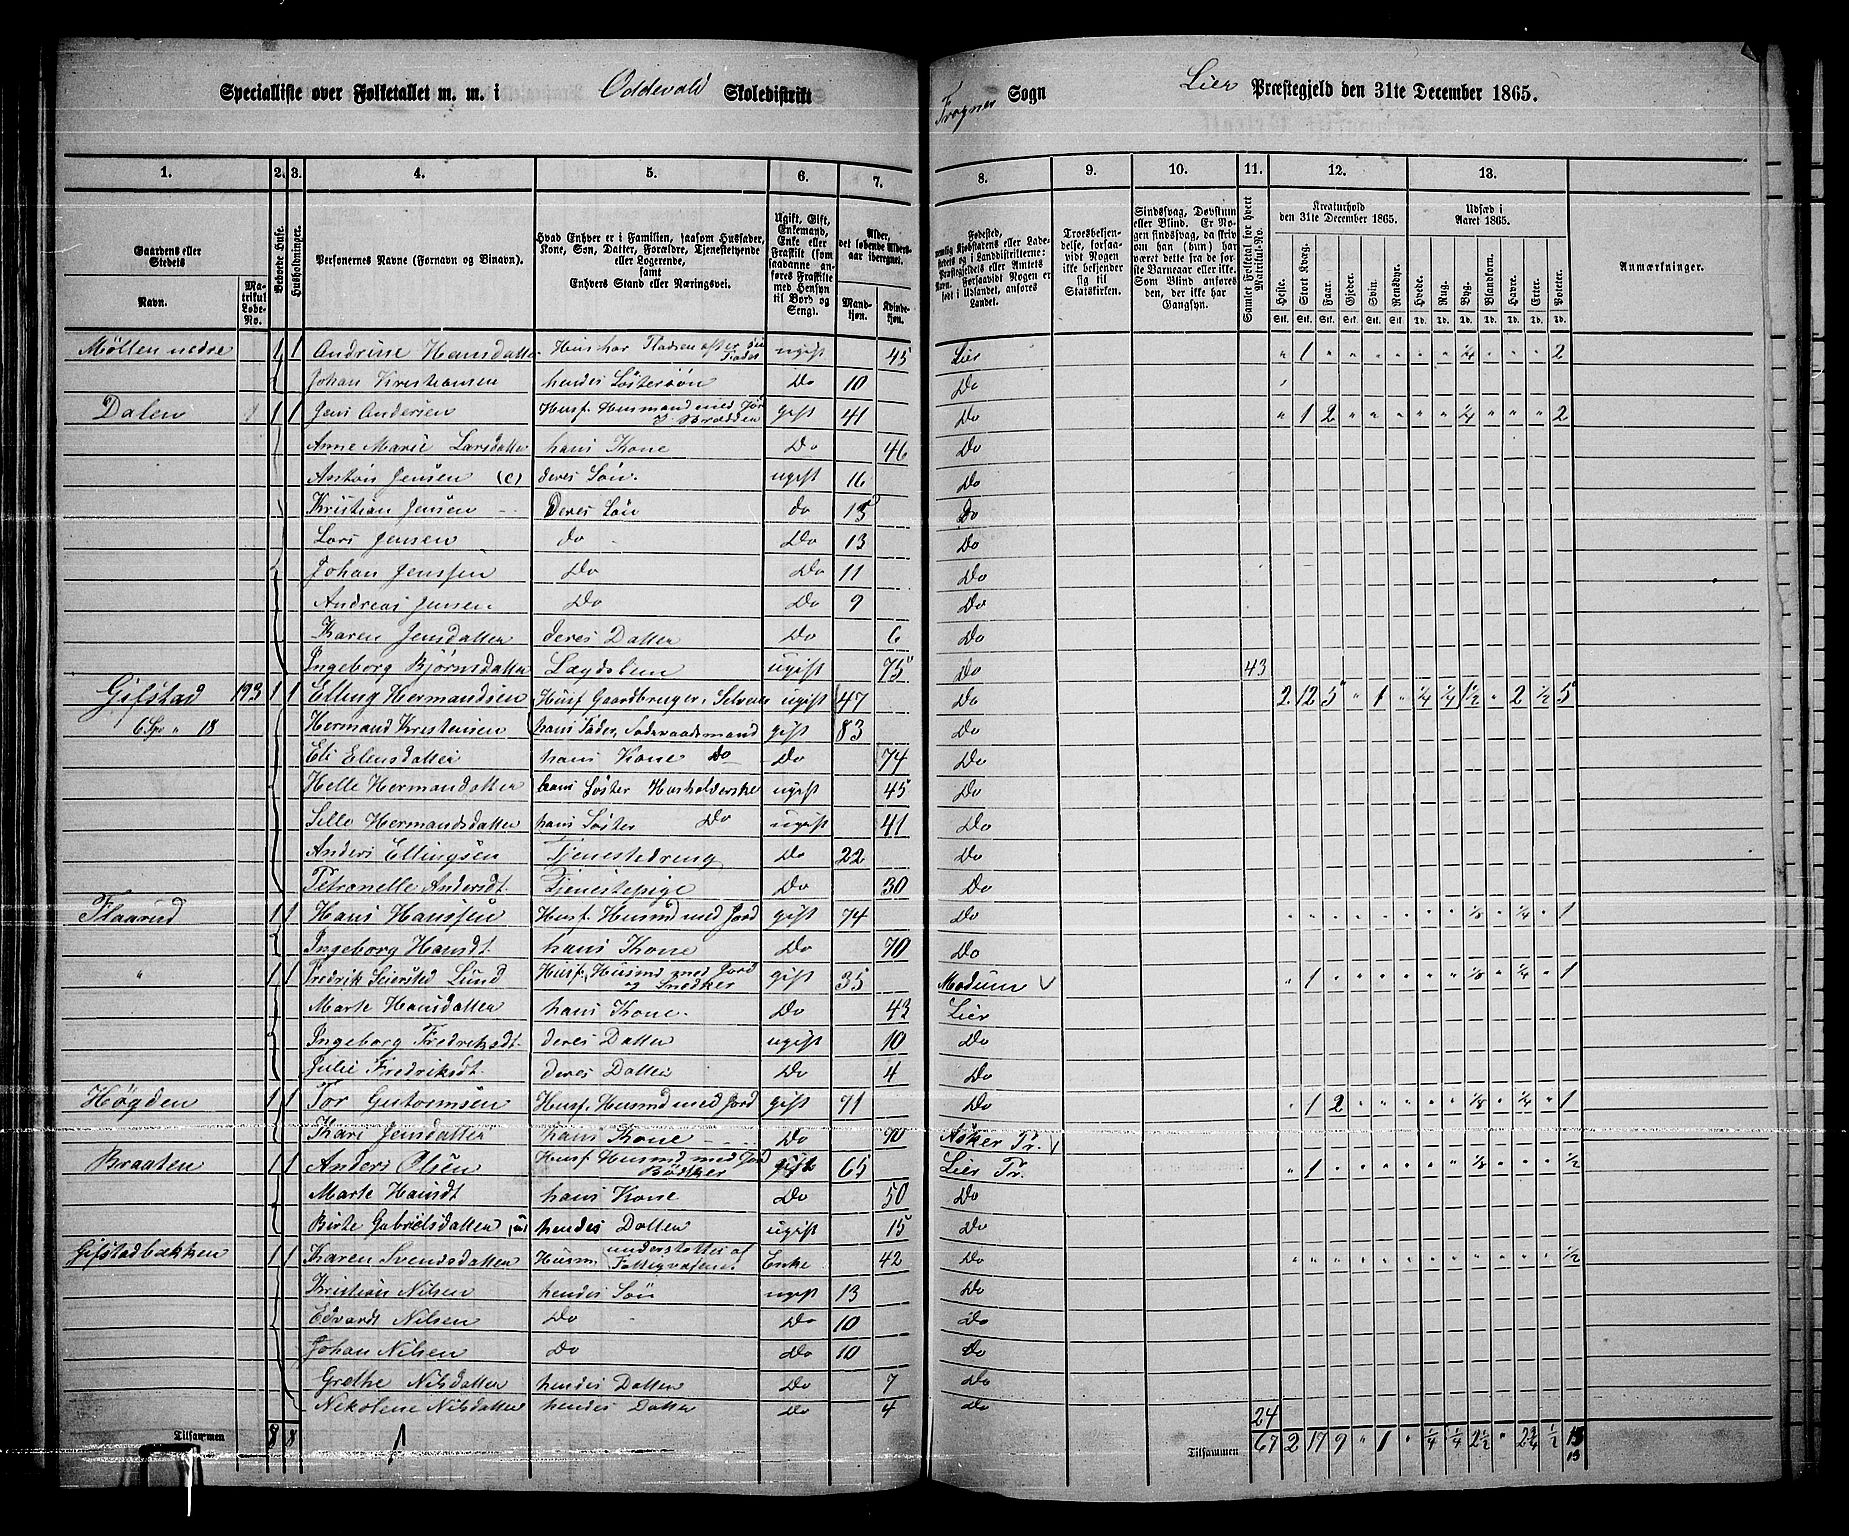 Specialliste over Folketallet m. m. i Oddevald Skoledistrikt Frogner Sogn Lier Præstegjeld den 31te December 1865.
1. 2. 3. 4. 5. 6. 7. 8. 9. 10. 11. 12. 13.
Gaardens eller Stedets
Navn.
Matrikul Løbe-No.
Beboede Huse.
Husholdninger.
Personernes Navne (Fornavn og Binavn).
Hvad Enhver er i Familien, saasom Husfader, Kone, Søn, Datter, Forældre, Tjenestetyende eller Logerende, samt Enhvers Stand eller Næringsvei.
Ugift, Gift, Enkemand, Enke eller Fraskilt (som saadanne anføres Fraskilte med Hensyn til Bord og Seng).
Alder, det løbende Aldersaar iberegnet.
Mandkjøn. Kvindekjøn.
Fødested,
Troesbekjendelse, forsaavidt Nogen ikke bekjender sig til Statskirken.
Sindssvag, Døvstum eller Blind. Er Nogen sindssvag, da skriv om han (hun) har været dette fra de første Barneaar eller ikke. Som Blind anføres den, der ikke har Gangsyn.
Samlet Folketal for hvert Matrikul-No.
Kreaturhold den 31te December 1865.
Heste. Stort Kvæg. Faar. Gjeder. Svin. Rensdyr.
Udsæd i Aaret 1865.
Hvede. Rug. Byg. Blandkorn. Havre. Erter. Poteter.
Stk. Stk. Stk. Stk. Stk. Stk. Td. Td. Td. Td. Td. Td. Td.
Anmærkninger.
Møllen nedre 1 1 Andrine Hansdatter Hun har Pladsen efter sin Fader ugift 45 Lier " 1 " " " " " " ¼ " " " 2
Johan Kristiansen hendes Søstersøn Do 10 Do
Dalen 1 1 Jens Andersen Husf. Husmand med Jord gift 41 Do " 1 2 " " " " " ¼ " " " 2
Anne Marie Larsdatter hans Kone Do 46 Do
Anton Jensen (c) deres Søn. ugift 16 Do
Kristian Jensen Deres Søn do 15 Do
Lars Jensen do Do 13 Do
Johan Jenssen Do Do 11 Do
Andreas Jensen Do Do 9 Do
Karen Jensdatter deres Datter Do 6 Do
Ingeborg Bjørnsdatter Lægdslem ugift 75 Do 43
Gifstad 193 1 1 Elling Hermandsen Husf Gaardbruger, Selveier ugift 47 Do 2 12 5 " 1 " ¼ ¼ 1½ " 2 ½ 5
6 Spd " 18 Hermand Kristensen hans Fader, Føderaadsmand gift 83 Do
Eli Elensdatter hans Kone Do Do 74 Do
Helle Hermandatter hans Søster Husholderske ugift 45 Do
Sille Hermandsdatter hans Søster Do ugift 41 Do
Anders Ellingsen Tjenestedreng Do 22 Do
Petronelle Andersdt. Tjenestepige Do 30 Do
Flaarud 1 1 Hans Hanssen Husf. Husmd med Jord gift 74 Do " " " " " " " " ⅛ " ¼ " 1
Ingeborg Hansdt. hans Kone Do 70 Do
" 1 1 Fredrik Seiersted Lund Husf. Husmd med Jord og Snedker gift 35 Modum V " 1 " " " " " " ⅛ " ¼ " 1
Marte Hansdatter hans Kone. Do 43 Lier
Ingeborg Fredriksdt. deres Datter ugift 10 Do
Julie Fredriksdt. deres Datter Do 4 Do
Høgden 1 1 Tor Gutormsen Husf. Husmd med Jord gift 71 Do " 1 2 " " " " " ⅛ " ¼ " 1
Kari Jensdatter hans Kone Do 70 Asker Pr. V
Braaten 1 1 Anders Olsen Husf Husmd med Jord Bødker gift 65 Lier Pr. " 1 " " " " " " ⅛ " " " ½
Marte Hansdt hans Kone Do 50 Do
Birte Gabrielsdatter hendes Datter ugift 15 Do
Gifstadbakken 1 1 Karen Svendsdatter Husm understøttes af Fattigvæsenet Enke 42 Do " " " " " " " " " " " " ½
Kristian Nilsen hendes Søn ugift 13 Do
Edvardt Nilsen Do Do 10 Do
Johan Nilsen Do Do 10 Do
Grethe Nilsdatter hendes Datter Do 7 Do
Nikoline Nilsdatter hendes Datter Do 4 Do 24
Tilsammen 8 8 Tilsammen 67 2 17 9 " 1 " ¼ ¼ 2½ " 2¾ ½ 13
13